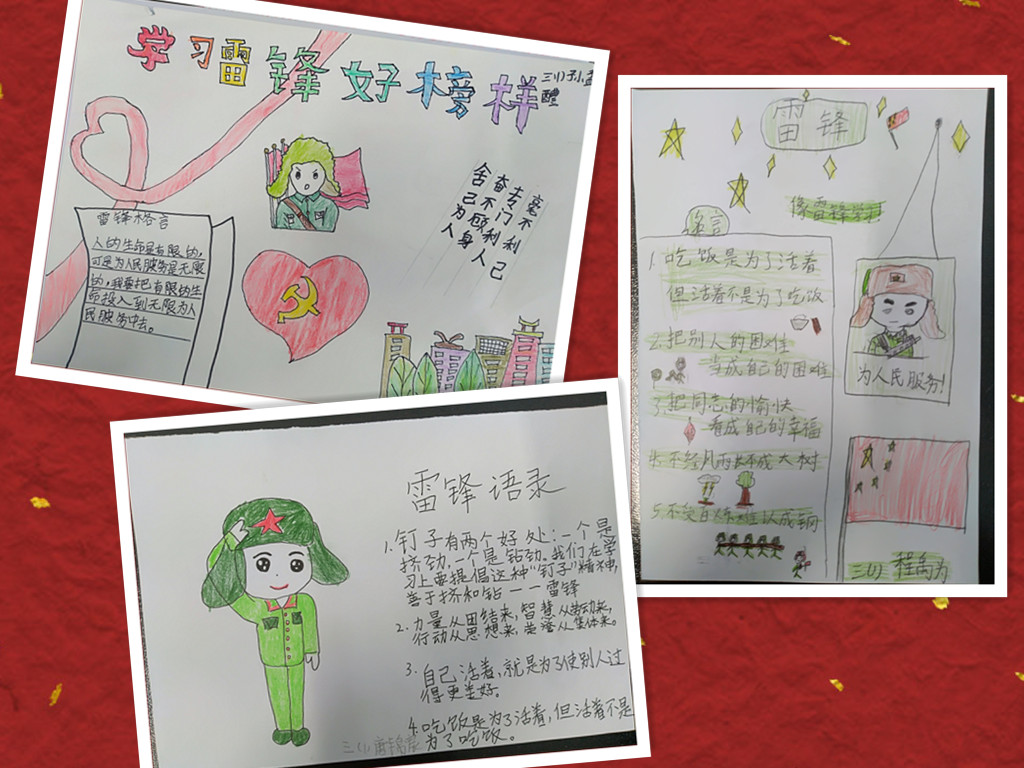 学习雷锋好榜样
三(1)孙孟
醒
雷锋格言
人的生命是有限的,
可是为人民服务是无限
的,我要把有限的生
命投入到无限为人
民服务中去。
毫不利己
专门利人
奋不顾身
舍己为人
雷锋
像雷锋学习
格言
1.吃饭是为了活着
但活着不是为了吃饭
2.把别人的困难
当成自己的困难
3.把同志的愉快
看成自己的幸福
4.不经风雨长不成大树
5.不受百炼难以成钢
为人民服务!
三(1)程禹为
雷锋语录
1.钉子有两个好处:一个是
挤劲,一个是钻劲.我们在学
习上要提倡这种"钉子"精神,
善于挤和钻——雷锋
2.力量从团结来,智慧从劳动来,
行动从思想来,荣誉从集体来。
3.自己活着,就是为了使别人过
得更美好.
4.吃饭是为了活着,但活着不是
为了吃饭。
三(1)唐